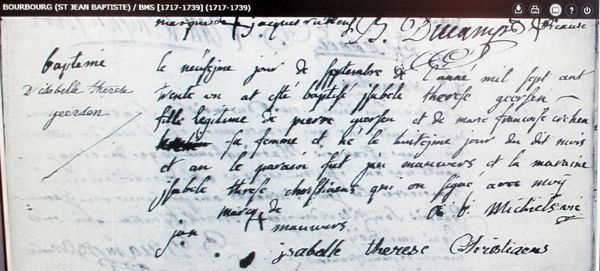 BOURBOURG (ST JEAN BAPTISTE) / BMS [1717-1739] (1717-1739)
marque de jacques
baptemé
D'isabelle therese
geerson
le neufiéme jour de septembre de l'anne mil sept cent
trente un at esté baptisé jsabele therese geersen
fille legitime de pierre geersen et de marc francoise
sa femme et né le huitiéme jour du dit mois
et an le parain fut jan mauwers et la maraine
jsabele therese christiaens qui on signé avec moÿ
marq de
jan mauwers
jsabelle therese Christiaens